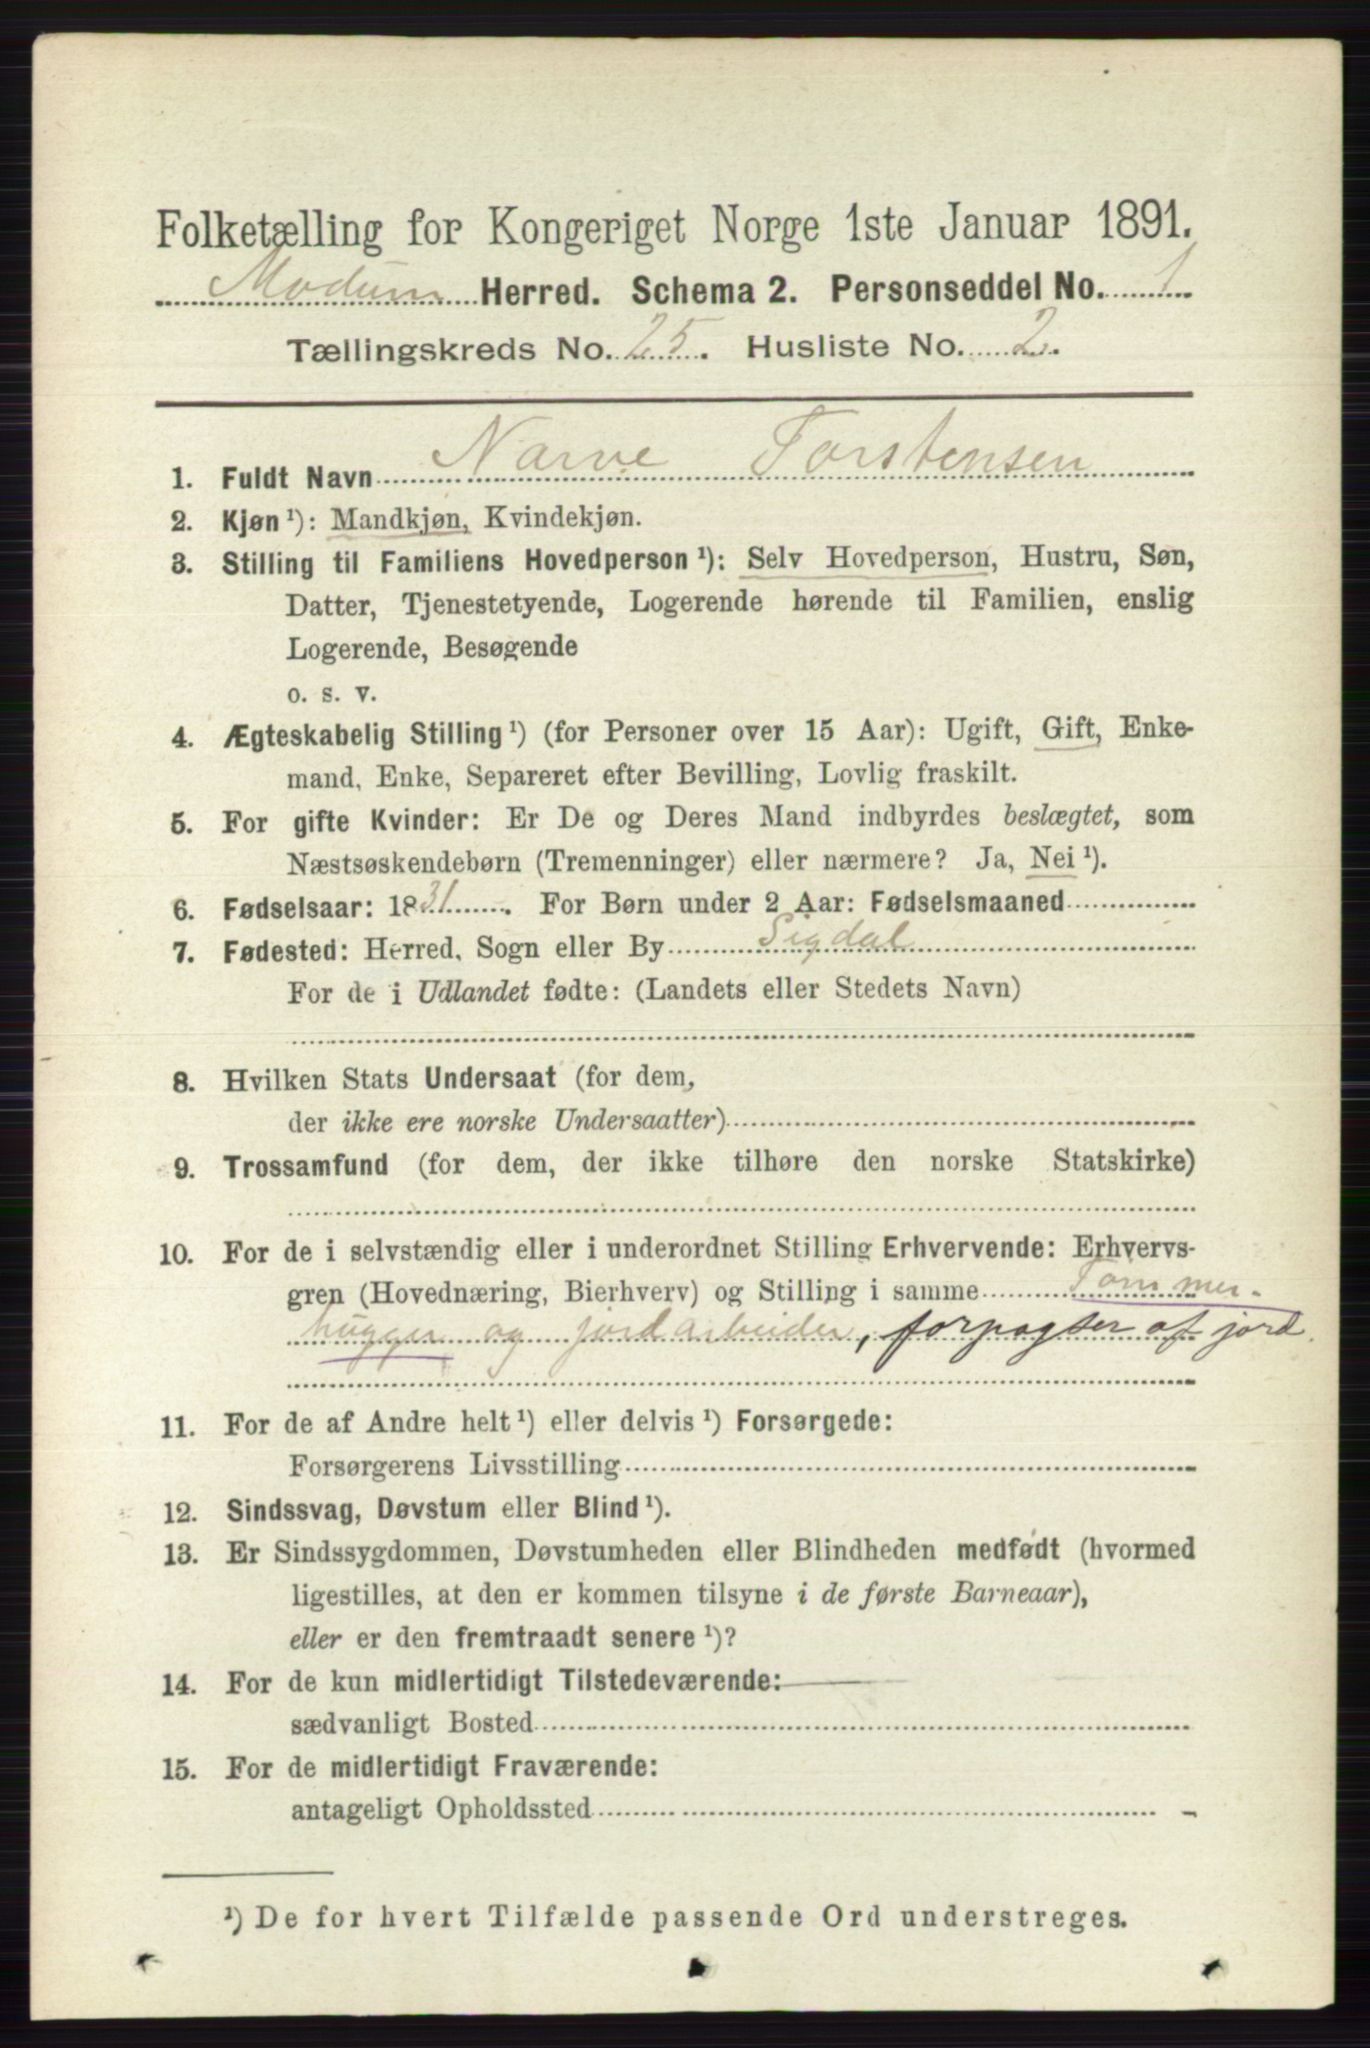 Folketælling for Kongeriget Norge 1ste Januar 1891.
Modum Herred. Schema 2. Personseddel No. 1
Tællingskreds No. 25. Husliste No. 2.
1. Fuldt Navn Narve Torstensen
2. Kjøn¹): Mandkjøn, Kvindekjøn.
3. Stilling til Familiens Hovedperson¹): Selv Hovedperson, Hustru, Søn,
Datter, Tjenestetyende, Logerende hørende til Familien, enslig
Logerende, Besøgende
o. s. v.
4. Ægteskabelig Stilling¹) (for Personer over 15 Aar): Ugift, Gift, Enke-
mand, Enke, Separeret efter Bevilling, Lovlig fraskilt.
5. For gifte Kvinder: Er De og Deres Mand indbyrdes beslægtet, som
Næstsøskendebørn (Tremenninger) eller nærmere? Ja, Nei¹).
6. Fødselsaar: 1831. For Børn under 2 Aar: Fødselsmaaned
7. Fødested: Herred, Sogn eller By Sigdal
For de i Udlandet fødte: (Landets eller Stedets Navn)
8. Hvilken Stats Undersaat (for dem,
der ikke ere norske Undersaatter)
9. Trossamfund (for dem, der ikke tilhøre den norske Statskirke)
10. For de i selvstændig eller i underordnet Stilling Erhvervende: Erhvervs-
gren (Hovednæring, Bierhverv) og Stilling i samme Tømmer-
hugger og jordarbeider, forpagter af jord.
11. For de af Andre helt¹) eller delvis¹) Forsørgede:
Forsørgerens Livsstilling
12. Sindssvag, Døvstum eller Blind¹).
13. Er Sindssygdommen, Døvstumheden eller Blindheden medfødt (hvormed
ligestilles, at den er kommen tilsyne i de første Barneaar),
eller er den fremtraadt senere¹)?
14. For de kun midlertidigt Tilstedeværende:
sædvanligt Bosted
15. For de midlertidigt Fraværende:
antageligt Opholdssted
¹) De for hvert Tilfælde passende Ord understreges.